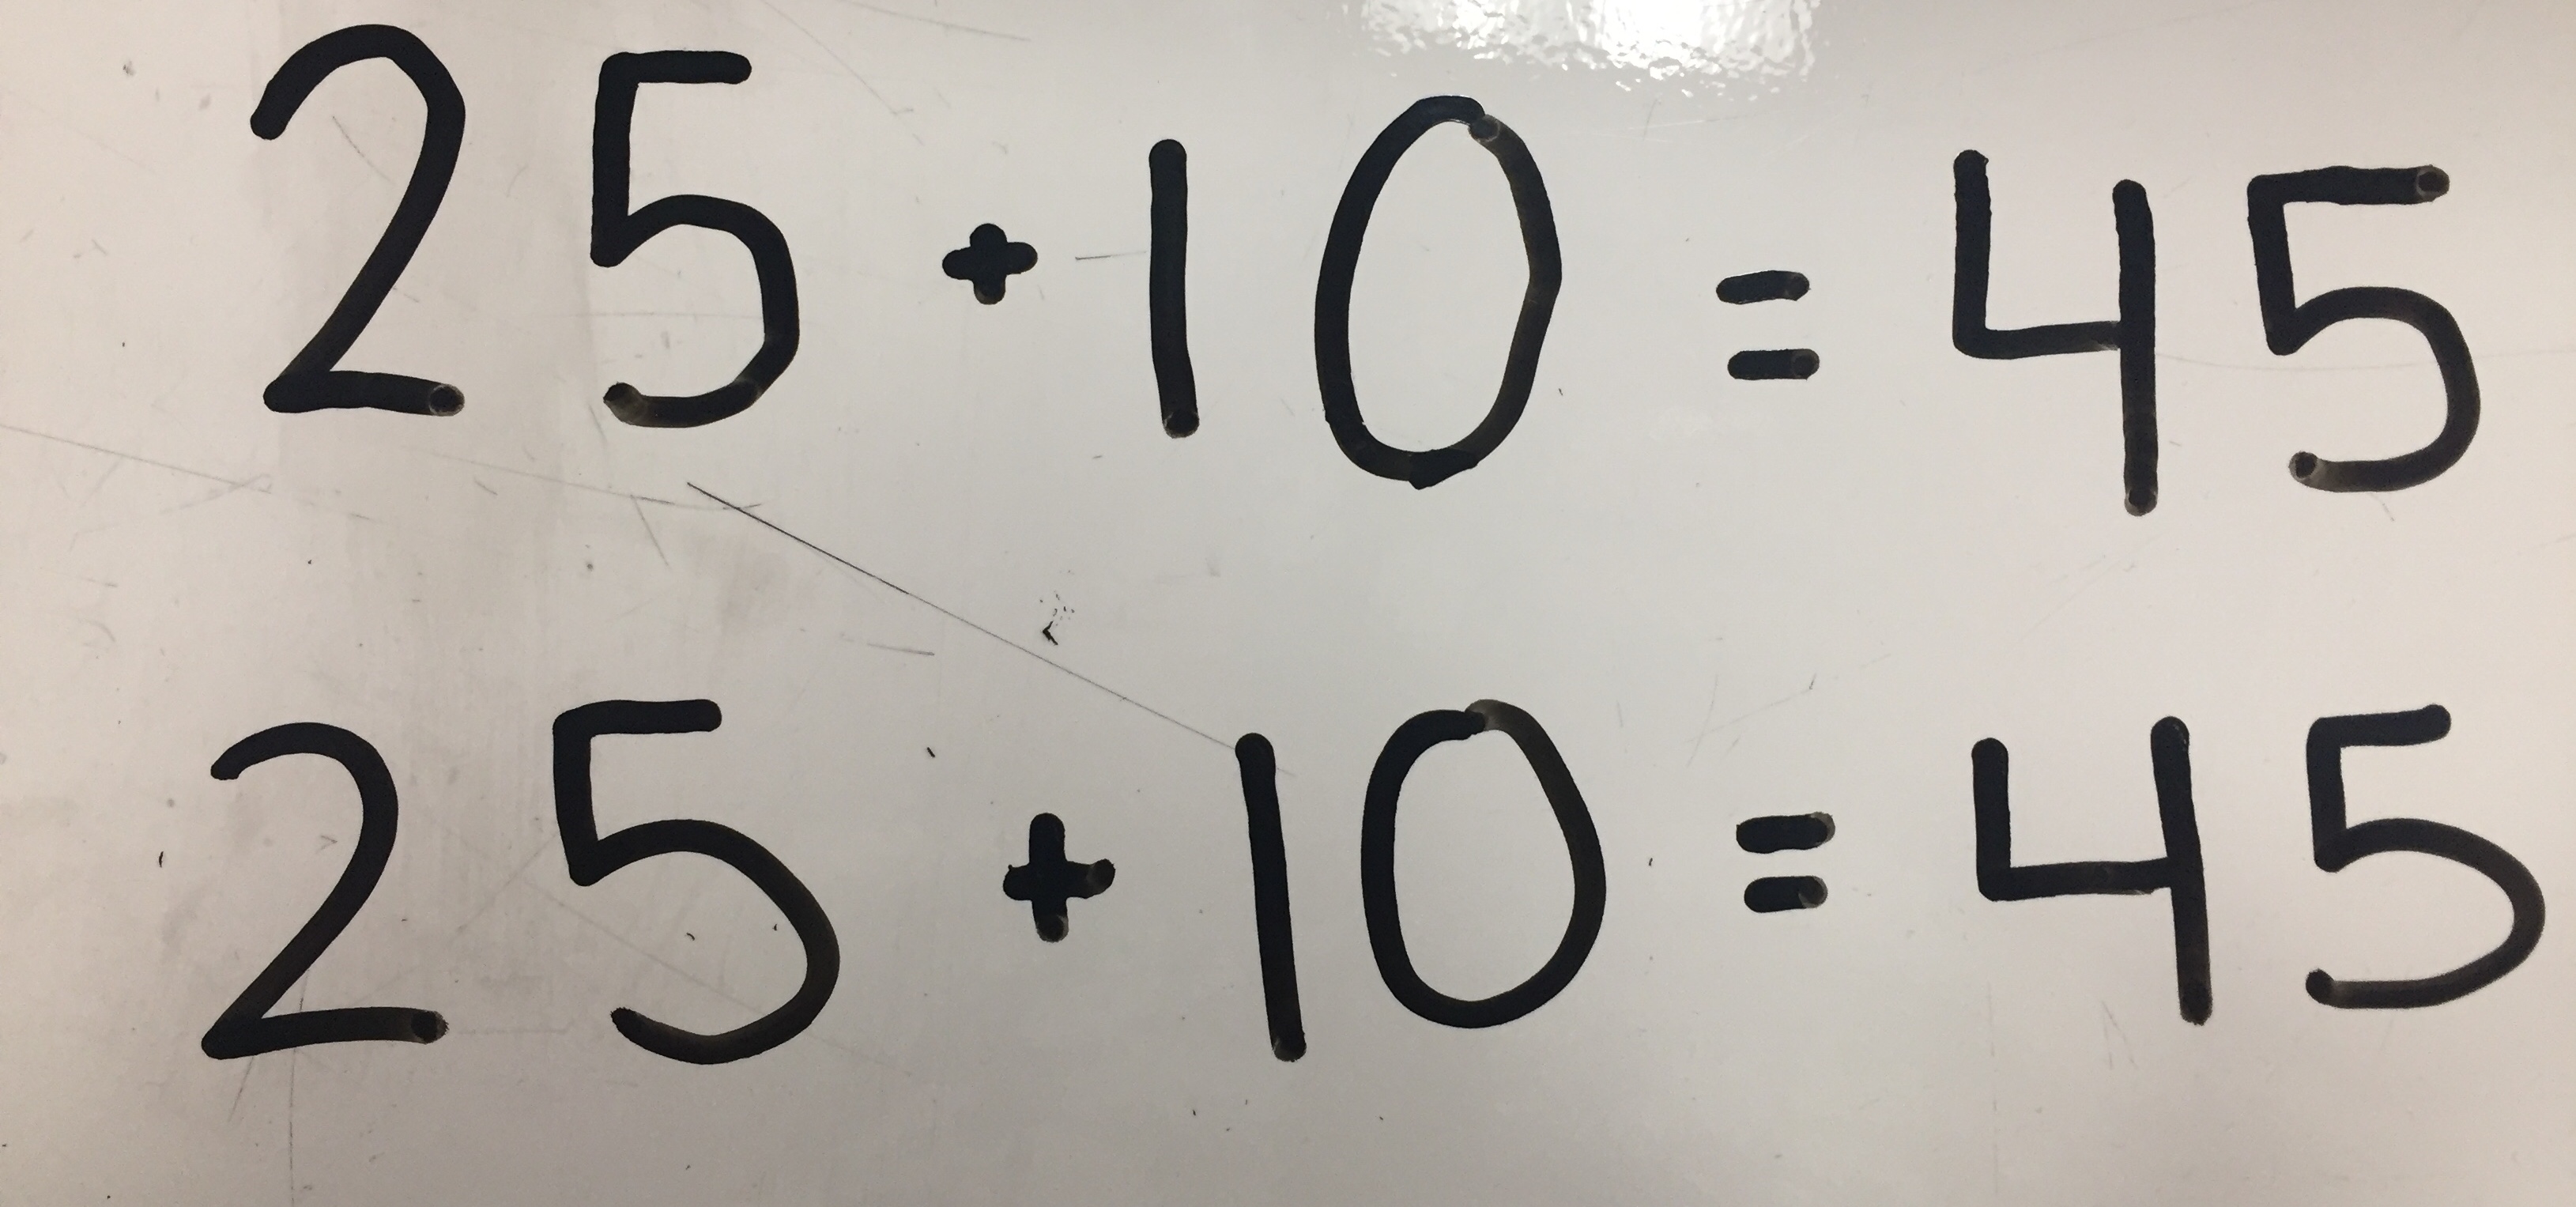 25 + 10 = 45
25 + 10 = 45